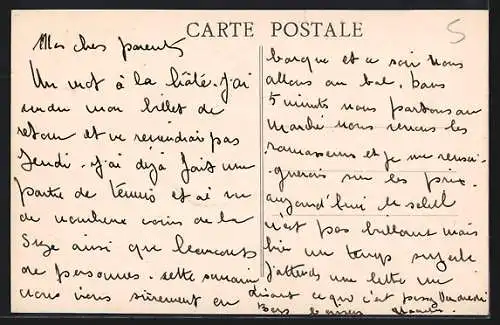 CARTE POSTALE
5
Mes chers parents
Un mot à la hâte. J'ai
rendu mon billet de
retour et ne reviendrais pas
Jeudi. J'ai déjà fait une
partie de tennis et ai vu
de nombreux coins de la
Suze ainsi que beaucoup
de personnes. cette semaine
nous irons sûrement en
barque et ce soir nous
allons au bal. Dans
5 minutes nous partons au
marché nous verrons les
et je me rensei-
gnerais sur les prix.
aujourd'hui le soleil
n'est pas brillant mais
bien un temps
J'attends une lettre me
disant ce que c'est pour Vendredi
Bons baisers